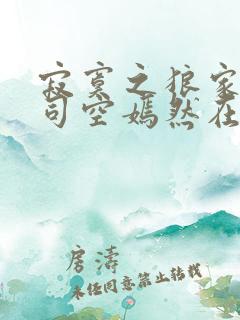 寂寞之狼家
司空嫣然在
房涛
未经同意禁止转载